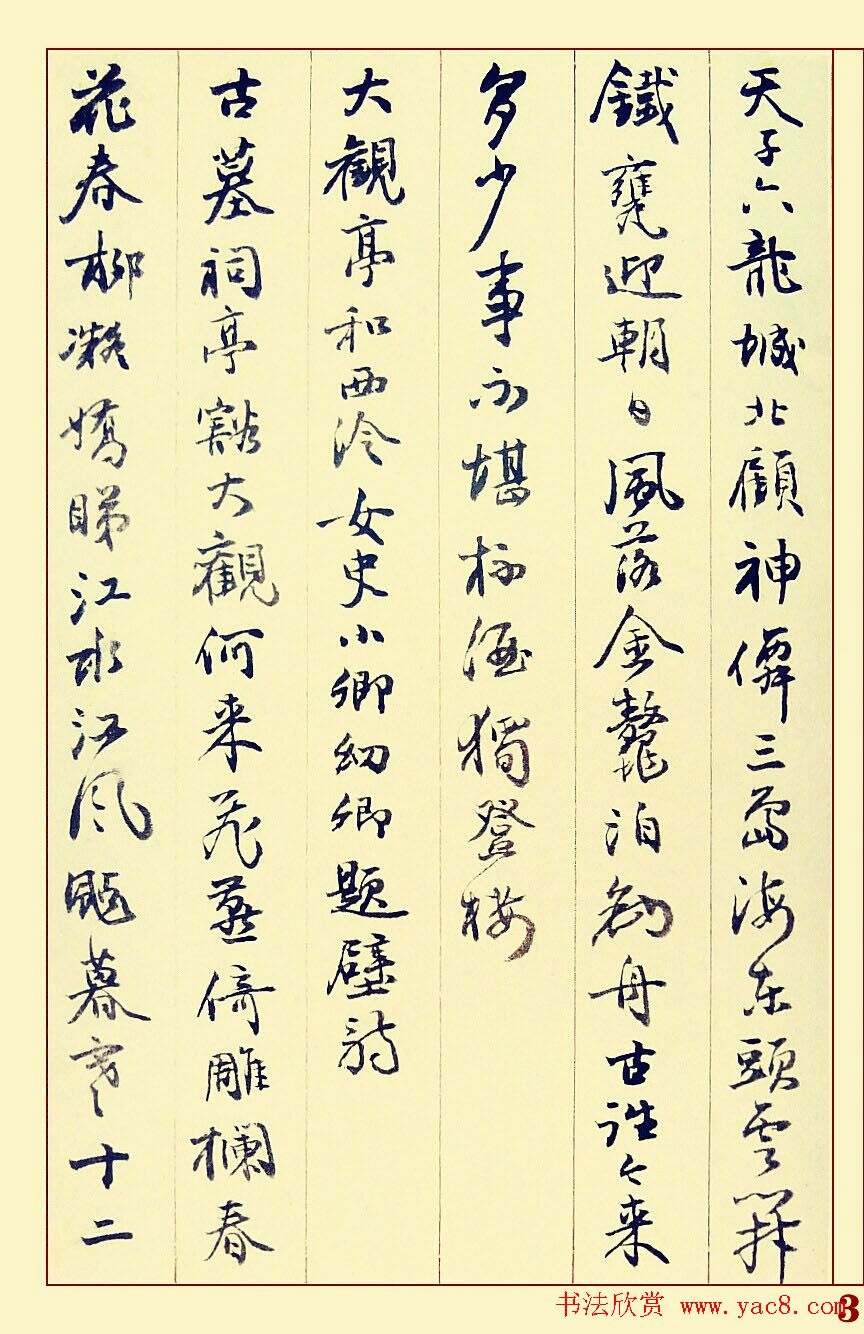 天子六龍城北顧神僊三島海東頭雲開
鐵甕迎朝日風落金鰲泊釣舟古往今来
多少事不堪杯酒獨登樓
大觀亭和西泠女史小卿幼卿題壁詩
古墓祠亭豁大觀何来飛燕倚雕欄春
花春柳凝嬌睇江水江风颭暮寒十二
书法欣赏 www.yac8.com
3